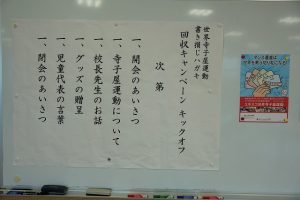 世界寺子屋運動
書き損じハガキ
回収キャンペーン キックオフ
次 第
一、開会のあいさつ
一、寺子屋運動について
一、校長先生のお話
一、グッズの贈呈
一、児童代表の言葉
一、閉会のあいさつ